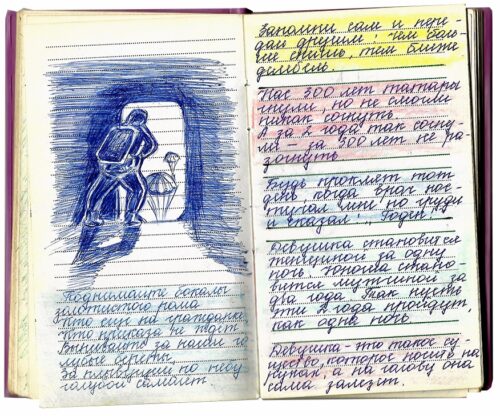 Поднимайте бокалы
золотистого рома
Кто на гражданке,
Кто приказа не ждет
Выпивайте за наши го
лубые береты,
За плывущий по небу
голубой самолет
Запомни сам и пере-
дай другим: Чем боль-
ше спишь, тем ближе
дембель.
Нас 300 лет татары
гнули, но не смогли
никак согнуть.
А за 2 года так согну-
ли – за 300 лет не ра-
зогнуть
Будь проклят тот
день, когда врач пос-
тучал мне по груди
и сказал: „Годен"!
Девушка становится
женщиной за одну
ночь. Юноша стано-
вится мужчиной за
два года. Так пусть
эти 2 года пройдут,
как одна ночь.
Девушка - это такое су-
щество, которое носить на
руках, а на голову она
сама залезет.